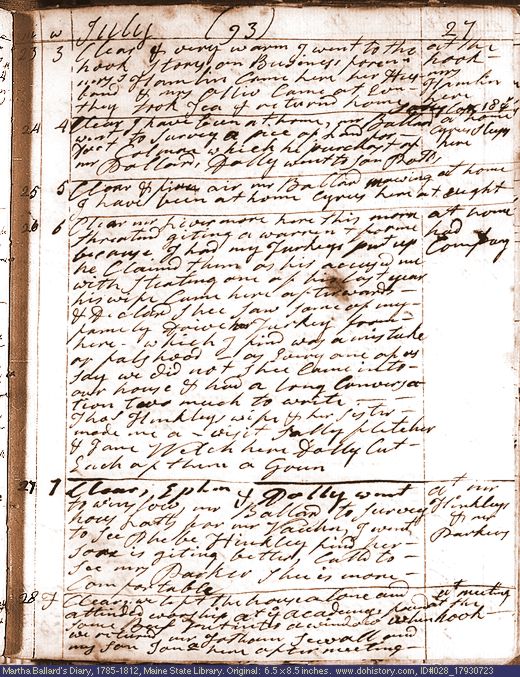 July (93) 27
23 3 Clear & very warm I went to the at the
hook Story on Business foren hook
Mrs Hamlin Came here her Hus- Mrs Hamlin
band & mrs oliv Came at Even here
they took Tea & returned home
24 4 Clear I have been at home mr Ballard at home
went to Survey a piece of land for Cyrus sleeps
which he purchast of here
mr Ballard, Dolly went to Son
25 5 Clear & air mr Ballard mowing at home
I have been at home Cyrus here at Night
26 6 Clear mr here this morn at home
Threatned giting a warren & had
because I had my Turkeys put up Company
he Claimd them as his accused me
with Stealing one of his last year
his wife Came here afterwards
& declard Shee Saw Some of my
family Drive her Turkey from
here - which I find was a mistake
or falshood - as Every one of us
Say we did not Shee Came into
our house & had a long Conversa
tion two much to write -
Thos Hinkleys wife & her Sister
made me a visit Polly Fletcher
& Jane Welch here Dolly Cut
Each of them a Goun
27 7 Clear, Ephm & Dolly went at mr
to winslow, mr Ballard to Survey Hinkleys
for mr Vaughn, I went & mr
to See Phebe Hinkley find her Parkers
is giting better Calld to
See mrs Parker Shee is more
Comfortable
28 Clear we left the house alone and at meeting
attended worship at academy at the
we returnd mr Jotham Sewall and hook
my Son here after meeting
Martha Ballard's Diary, 1785-1812, Maine State Library. Original: 6.5 x 8.5 inches. www.dohistory.com, ID#028_17930723